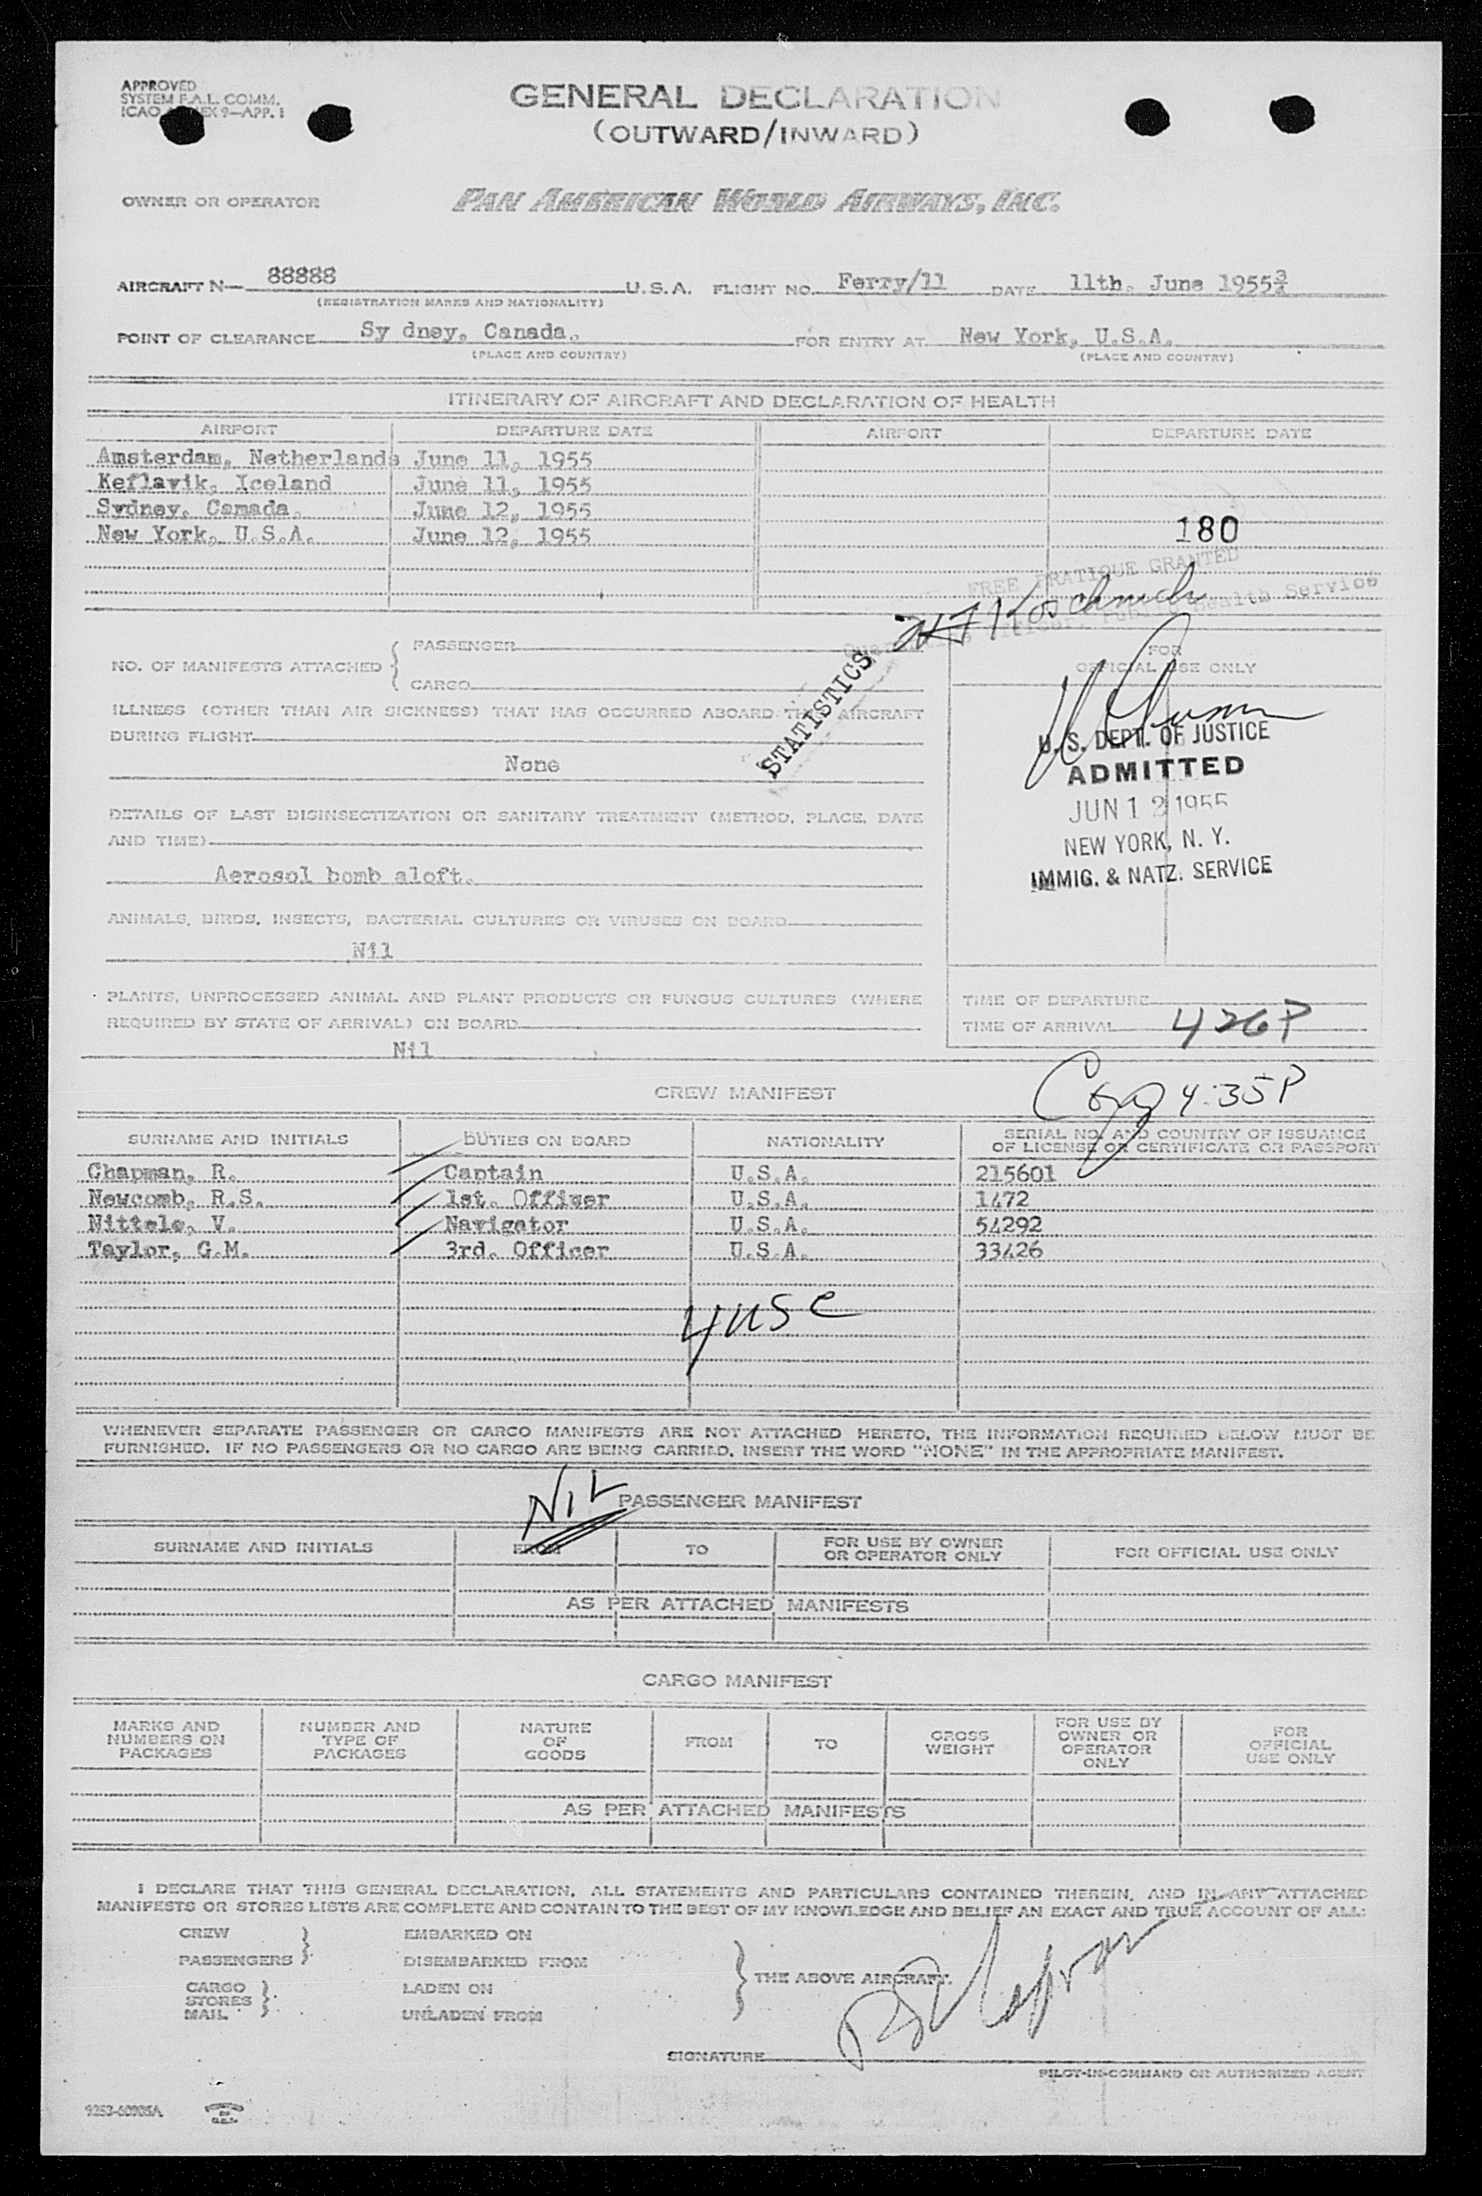 APPROVED
SYSTEM F.A.L. COMM.
ICAO ANNEX 9—APP. 1
GENERAL DECLARATION
(OUTWARD/INWARD)
OWNER OR OPERATOR PAN AMERICAN WORLD AIRWAYS, INC.
AIRCRAFT N— 88888 U.S.A. FLIGHT NO. Ferry/11 DATE 11th. June 1955
(REGISTRATION MARKS AND NATIONALITY)
POINT OF CLEARANCE Sy dney, Canada. FOR ENTRY AT New York, U.S.A.
(PLACE AND COUNTRY) (PLACE AND COUNTRY)
ITINERARY OF AIRCRAFT AND DECLARATION OF HEALTH
AIRPORT DEPARTURE DATE AIRPORT DEPARTURE DATE
Amsterdam, Netherlands June 11, 1955
Keflavik, Iceland June 11, 1955
Sydney, Canada. June 12, 1955
New York, U.S.A. June 12, 1955
180
FREE PRATIQUE GRANTED
Public Health Service
NO. OF MANIFESTS ATTACHED { PASSENGER
CARGO
STATISTICS
FOR
OFFICIAL USE ONLY
ILLNESS (OTHER THAN AIR SICKNESS) THAT HAS OCCURRED ABOARD THE AIRCRAFT
DURING FLIGHT
None
U.S. DEPT. OF JUSTICE
ADMITTED
JUN 12 1955
NEW YORK, N. Y.
IMMIG. & NATZ. SERVICE
DETAILS OF LAST DISINSECTIZATION OR SANITARY TREATMENT (METHOD, PLACE, DATE
AND TIME)
Aerosol bomb aloft.
ANIMALS, BIRDS, INSECTS, BACTERIAL CULTURES OR VIRUSES ON BOARD
Nil
PLANTS, UNPROCESSED ANIMAL AND PLANT PRODUCTS OR FUNGUS CULTURES (WHERE
REQUIRED BY STATE OF ARRIVAL) ON BOARD
Nil
TIME OF DEPARTURE
TIME OF ARRIVAL 426P
4:35P
CREW MANIFEST
SURNAME AND INITIALS DUTIES ON BOARD NATIONALITY SERIAL NO. AND COUNTRY OF ISSUANCE
OF LICENSE OR CERTIFICATE OR PASSPORT
Chapman, R. Captain U.S.A. 215601
Newcomb, R.S. 1st. Officer U.S.A. 1472
Nittele, V. Navigator U.S.A. 54292
Taylor, G.M. 3rd. Officer U.S.A. 33426
4 usc
WHENEVER SEPARATE PASSENGER OR CARGO MANIFESTS ARE NOT ATTACHED HERETO, THE INFORMATION REQUIRED BELOW MUST BE
FURNISHED. IF NO PASSENGERS OR NO CARGO ARE BEING CARRIED, INSERT THE WORD "NONE" IN THE APPROPRIATE MANIFEST.
NIL PASSENGER MANIFEST
SURNAME AND INITIALS FROM TO FOR USE BY OWNER
OR OPERATOR ONLY FOR OFFICIAL USE ONLY
AS PER ATTACHED MANIFESTS
CARGO MANIFEST
MARKS AND
NUMBERS ON
PACKAGES
NUMBER AND
TYPE OF
PACKAGES
NATURE
OF
GOODS
FROM
TO
GROSS
WEIGHT
FOR USE BY
OWNER OR
OPERATOR
ONLY
FOR
OFFICIAL
USE ONLY
AS PER ATTACHED MANIFESTS
I DECLARE THAT THIS GENERAL DECLARATION, ALL STATEMENTS AND PARTICULARS CONTAINED THEREIN, AND IN ANY ATTACHED
MANIFESTS OR STORES LISTS ARE COMPLETE AND CONTAIN TO THE BEST OF MY KNOWLEDGE AND BELIEF AN EXACT AND TRUE ACCOUNT OF ALL:
CREW EMBARKED ON
PASSENGERS } DISEMBARKED FROM
CARGO LADEN ON
STORES }
MAIL UNLADEN FROM
} THE ABOVE AIRCRAFT.
SIGNATURE
PILOT-IN-COMMAND OR AUTHORIZED AGENT